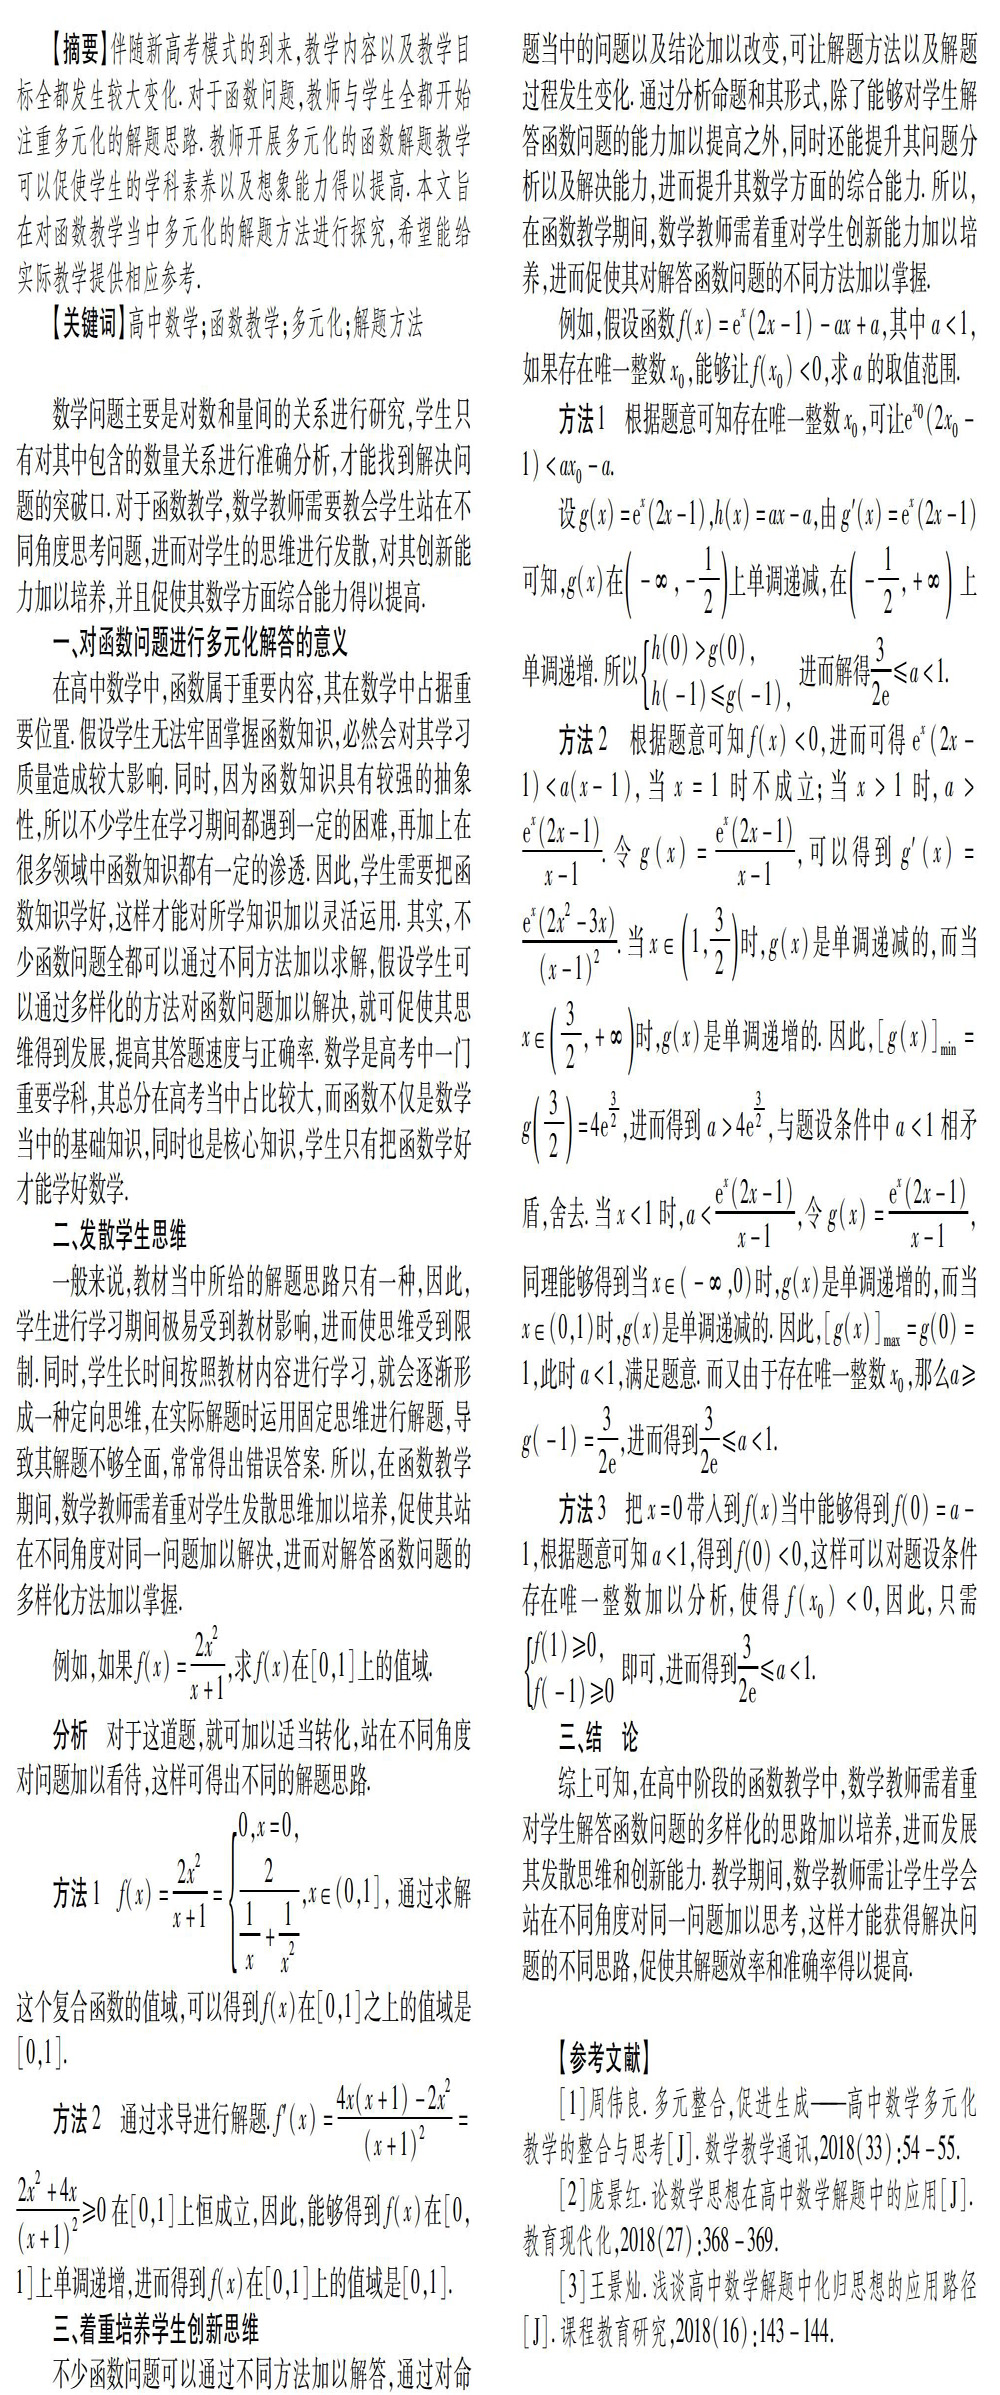 【摘要】伴随新高考模式的到来,教学内容以及教学目
标全都发生较大变化.对于函数问题,教师与学生全都开始
注重多元化的解题思路.教师开展多元化的函数解题教学
可以促使学生的学科素养以及想象能力得以提高.本文旨
在对函数教学当中多元化的解题方法进行探究,希望能给
实际教学提供相应参考.
【关键词】高中数学;函数教学;多元化;解题方法
数学问题主要是对数和量间的关系进行研究,学生只
有对其中包含的数量关系进行准确分析,才能找到解决问
题的突破口.对于函数教学,数学教师需要教会学生站在不
同角度思考问题,进而对学生的思维进行发散,对其创新能
力加以培养,并且促使其数学方面综合能力得以提高.
一、对函数问题进行多元化解答的意义
在高中数学中,函数属于重要内容,其在数学中占据重
要位置.假设学生无法牢固掌握函数知识,必然会对其学习
质量造成较大影响.同时,因为函数知识具有较强的抽象
性,所以不少学生在学习期间都遇到一定的困难,再加上在
很多领域中函数知识都有一定的渗透.因此,学生需要把函
数知识学好,这样才能对所学知识加以灵活运用.其实,不
少函数问题全都可以通过不同方法加以求解,假设学生可
以通过多样化的方法对函数问题加以解决,就可促使其思
维得到发展,提高其答题速度与正确率.数学是高考中一门
重要学科,其总分在高考当中占比较大,而函数不仅是数学
当中的基础知识,同时也是核心知识,学生只有把函数学好
才能学好数学.
二、发散学生思维
一般来说,教材当中所给的解题思路只有一种,因此,
学生进行学习期间极易受到教材影响,进而使思维受到限
制.同时,学生长时间按照教材内容进行学习,就会逐渐形
成一种定向思维,在实际解题时运用固定思维进行解题,导
致其解题不够全面,常常得出错误答案.所以,在函数教学
期间,数学教师需着重对学生发散思维加以培养,促使其站
在不同角度对同一问题加以解决,进而对解答函数问题的
多样化方法加以掌握.
例如,如果f(x)=2x²/(x+1),求f(x)在[0,1]上的值域.
分析 对于这道题,就可加以适当转化,站在不同角度
对问题加以看待,这样可得出不同的解题思路.
方法1 f(x)=2x²/(x+1)={0,x=0, 2/(1/x+1/x²),x∈(0,1], 通过求解
这个复合函数的值域,可以得到f(x)在[0,1]之上的值域是
[0,1].
方法2 通过求导进行解题.f′(x)=(4x(x+1)-2x²)/(x+1)²=
(2x²+4x)/(x+1)²≥0在[0,1]上恒成立,因此,能够得到f(x)在[0,
1]上单调递增,进而得到f(x)在[0,1]上的值域是[0,1].
三、着重培养学生创新思维
不少函数问题可以通过不同方法加以解答,通过对命
题当中的问题以及结论加以改变,可让解题方法以及解题
过程发生变化.通过分析命题和其形式,除了能够对学生解
答函数问题的能力加以提高之外,同时还能提升其问题分
析以及解决能力,进而提升其数学方面的综合能力.所以,
在函数教学期间,数学教师需着重对学生创新能力加以培
养,进而促使其对解答函数问题的不同方法加以掌握.
例如,假设函数f(x)=eˣ(2x-1)-ax+a,其中a<1,
如果存在唯一整数x₀,能够让f(x₀)<0,求a的取值范围.
方法1 根据题意可知存在唯一整数x₀,可让e^x0(2x₀-
1)<ax₀-a.
设g(x)=eˣ(2x-1),h(x)=ax-a,由g′(x)=eˣ(2x-1)
可知,g(x)在(-∞,-1/2)上单调递减,在(-1/2,+∞)上
单调递增.所以{h(0)>g(0), h(-1)≤g(-1), 进而解得3/2e≤a<1.
方法2 根据题意可知f(x)<0,进而可得eˣ(2x-
1)<a(x-1),当x=1时不成立;当x>1时,a>
eˣ(2x-1)/(x-1).令g(x)=eˣ(2x-1)/(x-1),可以得到g′(x)=
eˣ(2x²-3x)/(x-1)².当x∈(1,3/2)时,g(x)是单调递减的,而当
x∈(3/2,+∞)时,g(x)是单调递增的.因此,[g(x)]min=
g(3/2)=4e^(3/2),进而得到a>4e^(3/2),与题设条件中a<1相矛
盾,舍去.当x<1时,a<eˣ(2x-1)/(x-1),令g(x)=eˣ(2x-1)/(x-1),
同理能够得到当x∈(-∞,0)时,g(x)是单调递增的,而当
x∈(0,1)时,g(x)是单调递减的.因此,[g(x)]max=g(0)=
1,此时a<1,满足题意.而又由于存在唯一整数x₀,那么a≥
g(-1)=3/2e,进而得到3/2e≤a<1.
方法3 把x=0带入到f(x)当中能够得到f(0)=a-
1,根据题意可知a<1,得到f(0)<0,这样可以对题设条件
存在唯一整数加以分析,使得f(x₀)<0,因此,只需
{f(1)≥0, f(-1)≥0 即可,进而得到3/2e≤a<1.
三、结 论
综上可知,在高中阶段的函数教学中,数学教师需着重
对学生解答函数问题的多样化的思路加以培养,进而发展
其发散思维和创新能力.教学期间,数学教师需让学生学会
站在不同角度对同一问题加以思考,这样才能获得解决问
题的不同思路,促使其解题效率和准确率得以提高.
【参考文献】
[1]周伟良.多元整合,促进生成——高中数学多元化
教学的整合与思考[J].数学教学通讯,2018(33):54-55.
[2]庞景红.论数学思想在高中数学解题中的应用[J].
教育现代化,2018(27):368-369.
[3]王景灿.浅谈高中数学解题中化归思想的应用路径
[J].课程教育研究,2018(16):143-144.